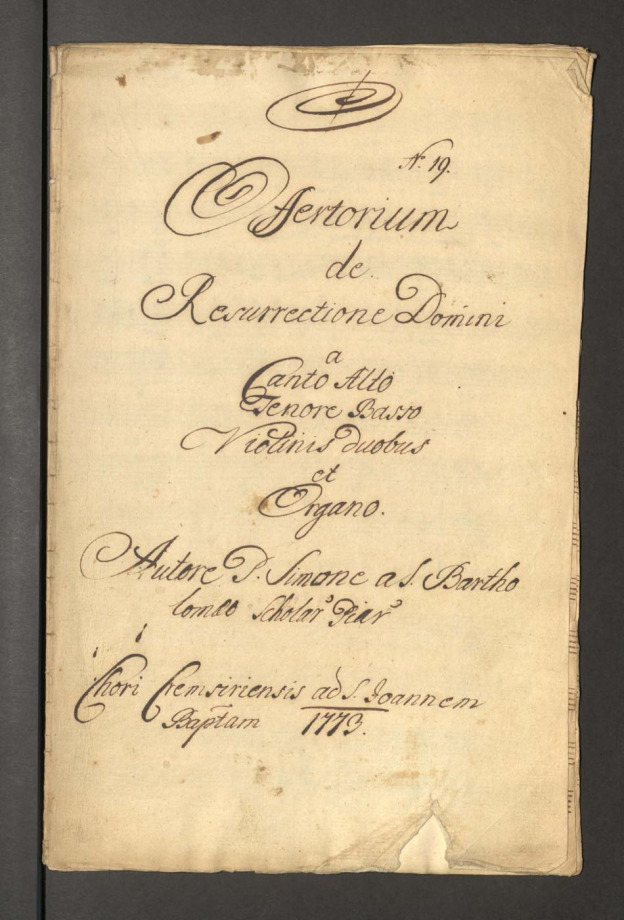 № 19.
Offertorium
de
Resurrectione Domini
a
Canto Alto
Tenore Basso
Violinis duobus
et
Organo.
Autore P. Simone a S. Bartho
lomæo Scholar Piar
Chori Cremsiriensis ad S. Joannem
Baptam 1773.